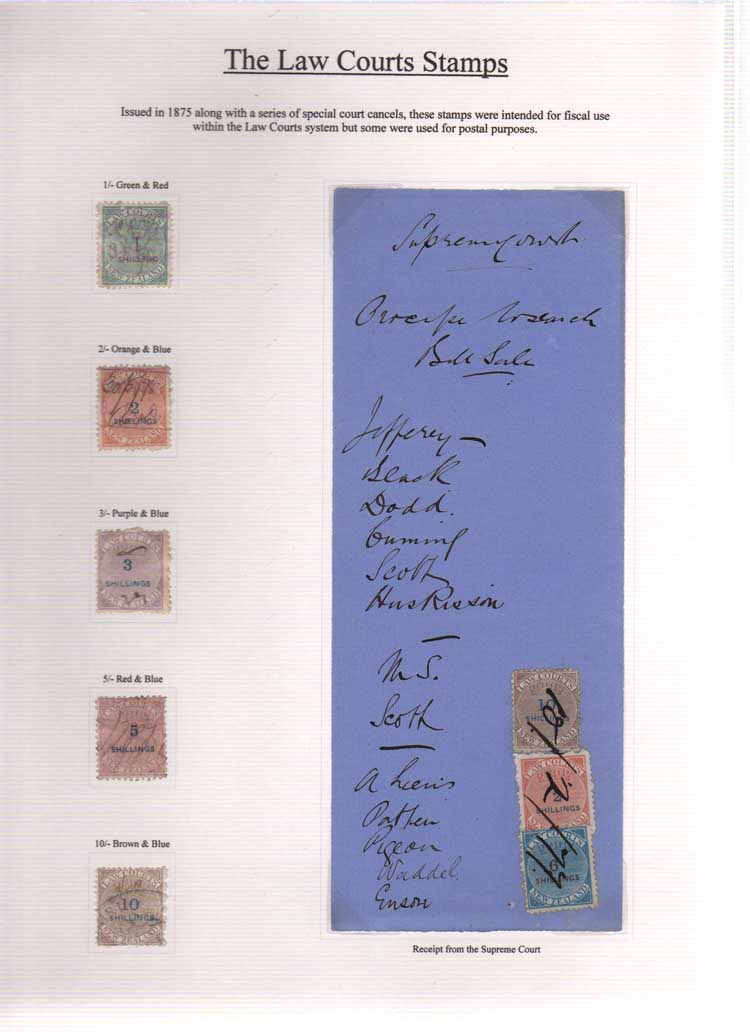 The Law Courts Stamps
Issued in 1875 along with a series of special court cancels, these stamps were intended for fiscal use
within the Law Courts system but some were used for postal purposes.
1/- Green & Red
LAW COURTS
1
SHILLING
NEW ZEALAND
2/- Orange & Blue
2
SHILLINGS
NEW ZEALAND
3/- Purple & Blue
LAW COURTS
3
SHILLINGS
5/- Red & Blue
5
SHILLINGS
10/- Brown & Blue
10
SHILLINGS
Supreme Court
Search
Bill Sale
Jefferey
Black
Dodd.
Cuming
Scott
Huskisson
M S.
Scott
Patten
Pigeon
Waddel.
Enson
LAW COURTS
10
NEW ZEALAND
LAW COURTS
2
SHILLINGS
NEW ZEALAND
LAW COURTS
6
SHILLINGS
NEW ZEALAND
Receipt from the Supreme Court